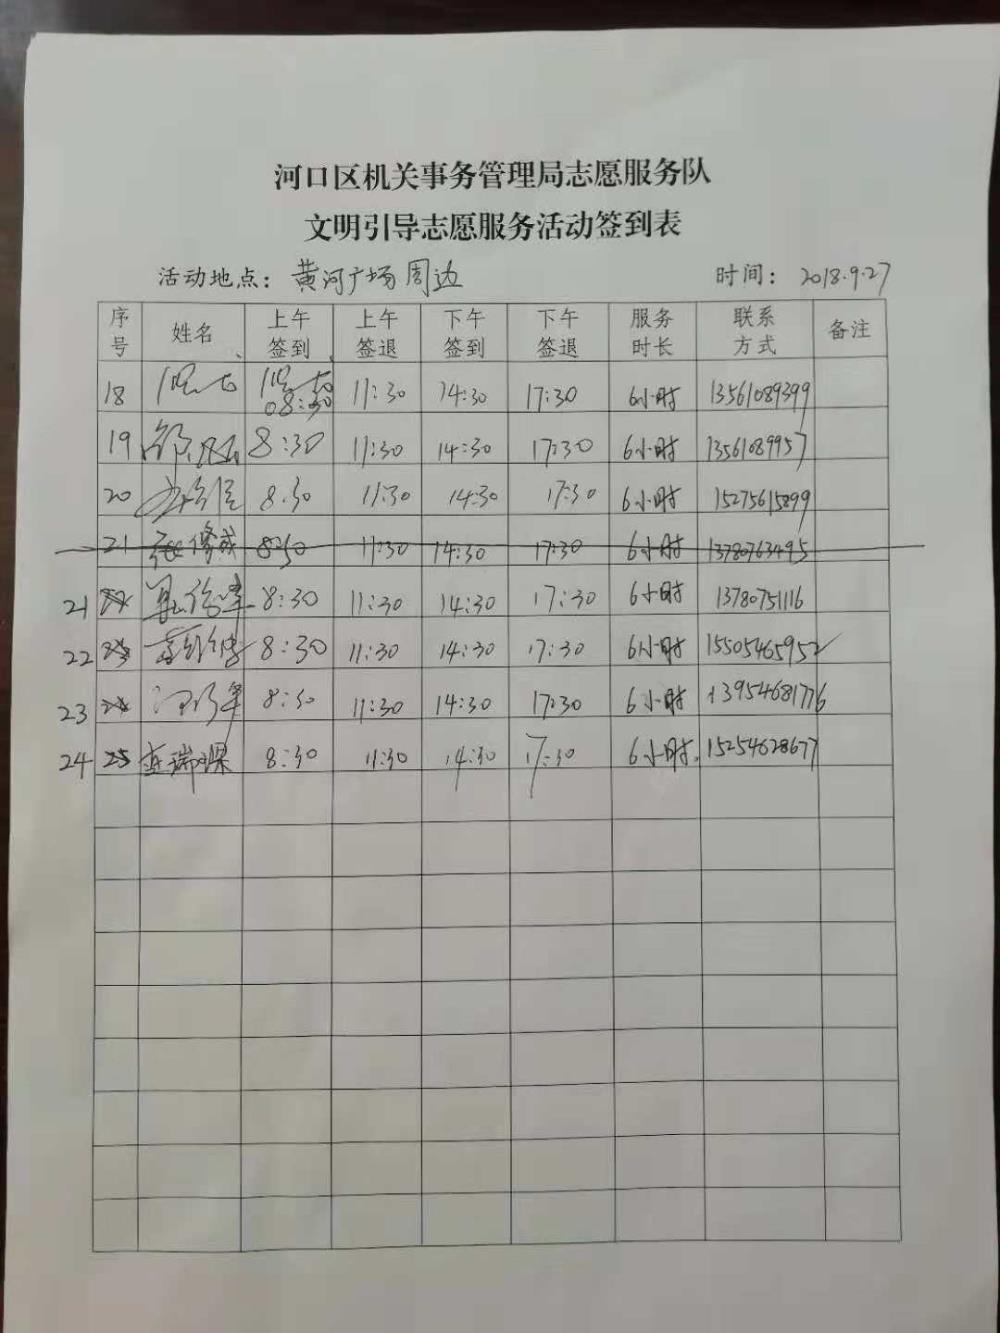 河口区机关事务管理局志愿服务队
文明引导志愿服务活动签到表
活动地点: 黄河广场周边 时间: 2018.9.27
序号 姓名 上午签到 上午签退 下午签到 下午签退 服务时长 联系方式 备注
18 08:30 11:30 14:30 17:30 6小时 13561089399
19 8:30 11:30 14:30 17:30 6小时 13561089957
20 8:30 11:30 14:30 17:30 6小时 15275615899
21 张修成 8:30 11:30 14:30 17:30 6小时 13780763495
21 8:30 11:30 14:30 17:30 6小时 13780751116
22 8:30 11:30 14:30 17:30 6小时 15505465952
23 8:30 11:30 14:30 17:30 6小时 13954681776
24 25 8:30 11:30 14:30 17:30 6小时. 15254628677